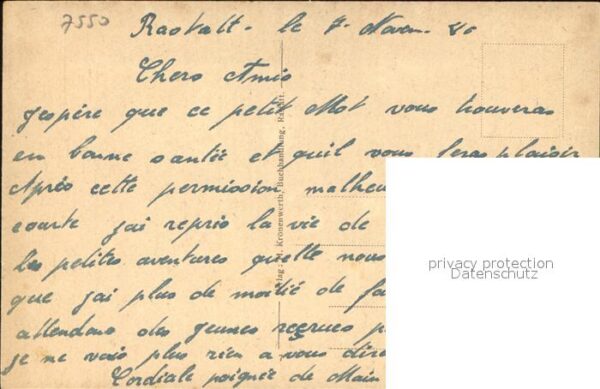 7550
Rastatt - le 7 - Novem -
Chers Amis
J'espère que ce petit Mot vous trouveras
en bonne santée et quil vous feras plaisir
Après cette permission malheu
courte j'ai repris la vie de
les petites aventures quelle nous
que j'ai plus de moitié de fa
attendons des jeunes recrues p
je ne vais plus rien a vous dire
Cordiale poignée de Main
Kronenwerth, Buchhandlung, Rastatt.
privacy protection
Datenschutz